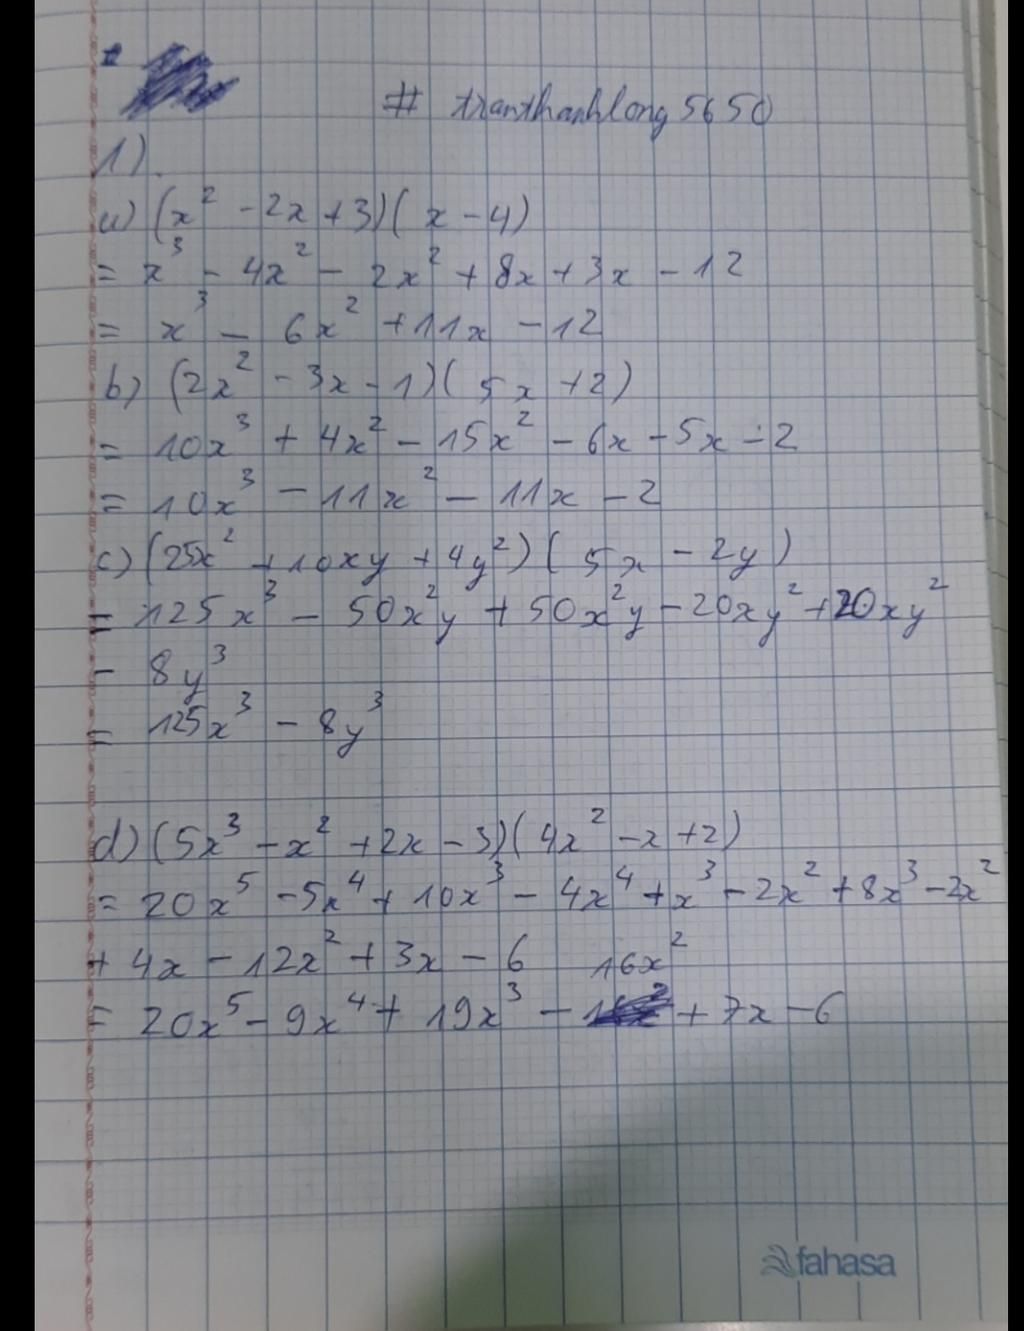 # tranthanhlong5650
1).
a) (x² - 2x + 3)(x - 4)
= x³ - 4x² - 2x² + 8x + 3x - 12
= x³ - 6x² + 11x - 12
b) (2x² - 3x - 1)(5x + 2)
= 10x³ + 4x² - 15x² - 6x - 5x - 2
= 10x³ - 11x² - 11x - 2
c) (25x² + 10xy + 4y²)(5x - 2y)
= 125x³ - 50x²y + 50x²y - 20xy² + 20xy²
- 8y³
= 125x³ - 8y³
d) (5x³ - x² + 2x - 3)(4x² - x + 2)
= 20x⁵ - 5x⁴ + 10x³ - 4x⁴ + x³ - 2x² + 8x³ - 2x²
+ 4x - 12x² + 3x - 6
16x²
= 20x⁵ - 9x⁴ + 19x³ - + 7x - 6
fahasa